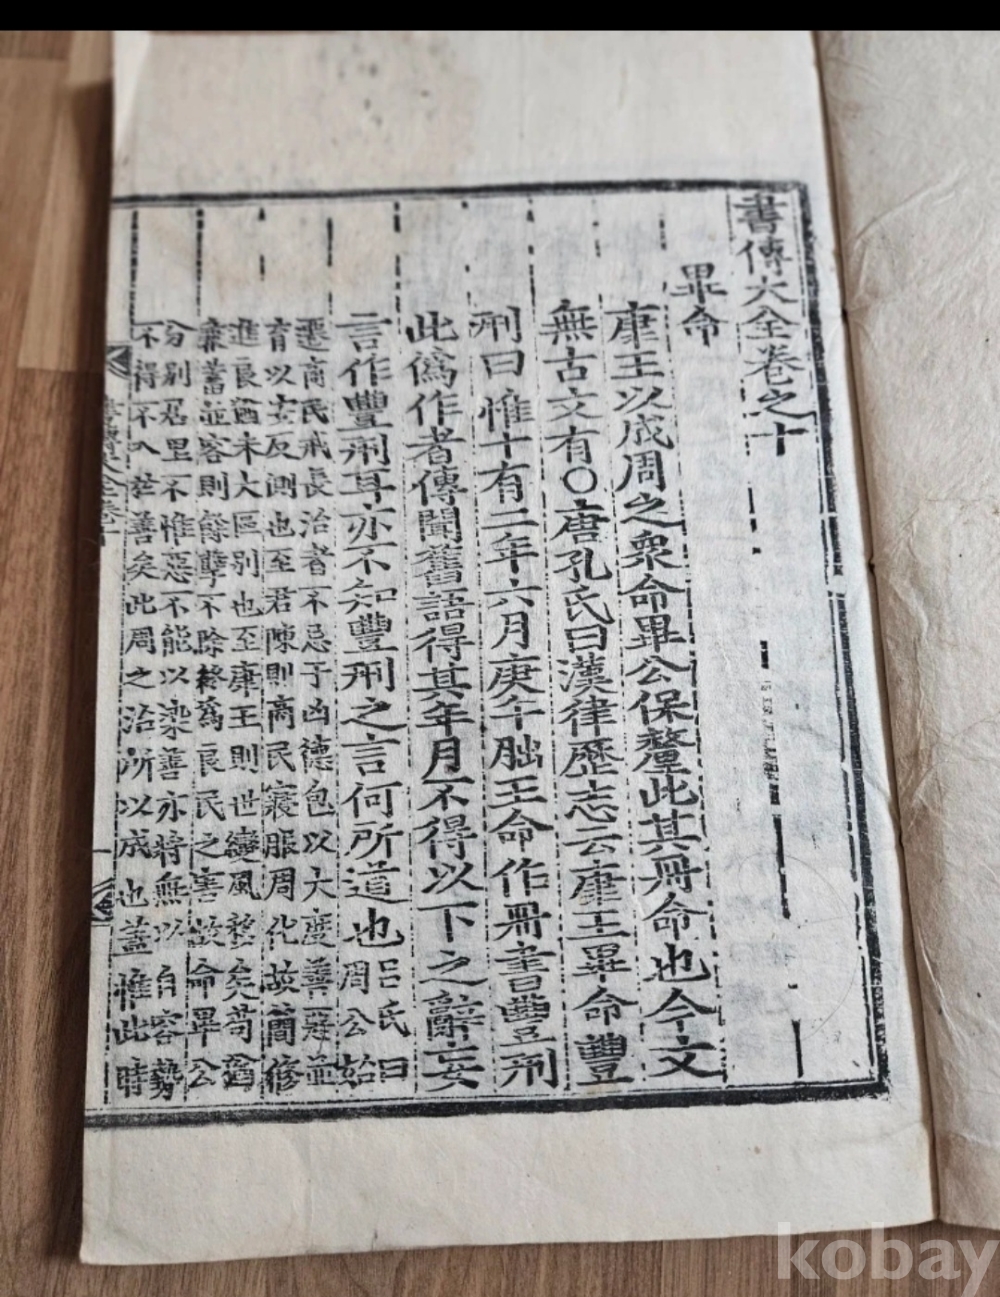 書傳大全卷之十
畢命
康王以成周之衆命畢公保釐此其冊命也今文
無古文有○唐孔氏曰漢律歷志云康王畢命豐
刑曰惟十有二年六月庚午朏王命作冊書豐刑
此僞作者傳聞舊語得其年月不得以下之辭妄
言作豐刑耳亦不知豐刑之言何所道也
呂氏曰
周公始
遷商民戒長治者不忌于凶德包以大度善惡並
育以安反側也至君陳則商民寖服周化故簡修
進良猶未大區別也至康王則世變風移矣苟猶
兼蓄並容則餘孽不除終爲良民之害故命畢公
分別居里不惟惡不能以染善亦將無以自容勢
不得不入於善矣此周之治所以成也蓋惟此時
kobay